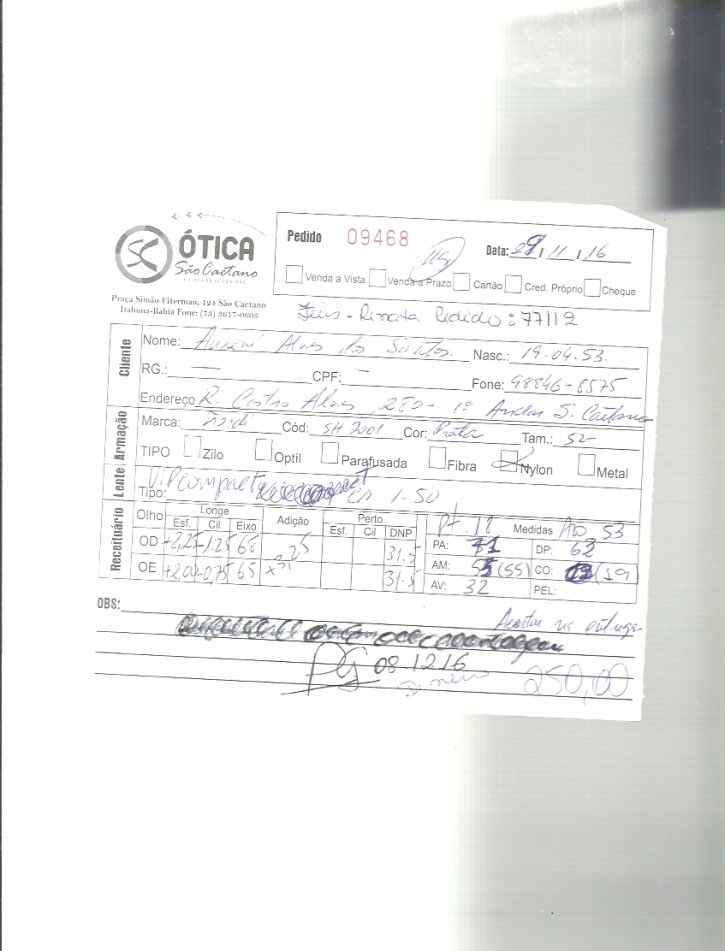 ÓTICA
São Caetano
Praça Simão Fiterman, 124 São Caetano
Itabuna-Bahia Fone: (73) 3617-0605
Pedido 09468 Data: 29/11/16
Venda a Vista Venda a Prazo Cartão Cred. Próprio Cheque
Renata Pedido: 77112
Cliente
Nome: Alves dos Santos. Nasc.: 19.04.53.
RG.: — CPF: — Fone: 98846-8575
Endereço R. Castro Alves, 280 - 1º Andar S. Caetano
Armação
Marca: Cód: SH 2001 Cor: Prata Tam.: 52
TIPO Zilo Optíl Parafusada Fibra Nylon Metal
Lente
Tipo: VIP complet 1.50
Receituário
Olho Longe Adição Perto Medidas 53
Esf. Cil Eixo Esf. Cil DNP
OD +2,25 -1,25 68 31.5
OE +2,00 -0,75 65 31.5
PA: DP: 62
AM: 55 (55) CO: (19)
AV: 32 PEL:
OBS: na entrega
PG 08 12 16
250,00